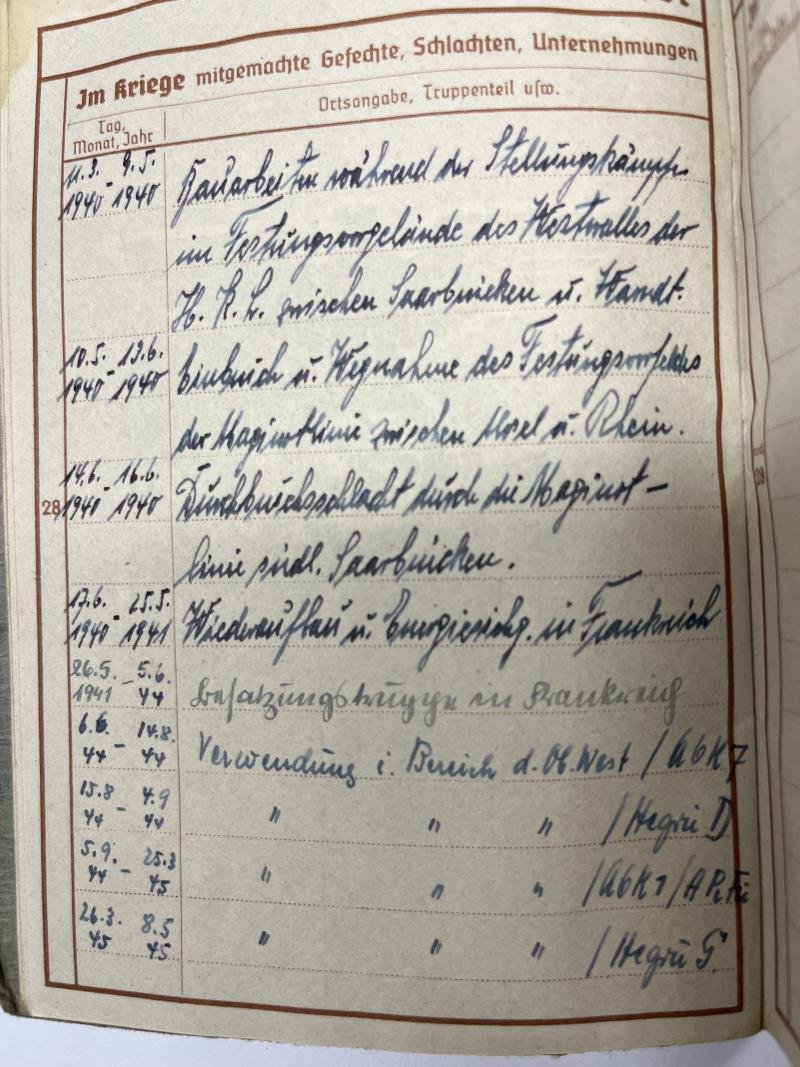 Im Kriege mitgemachte Gefechte, Schlachten, Unternehmungen
Tag, Monat, Jahr
Ortsangabe, Truppenteil usw.
11.3. - 9.5. 1940 1940 Bauarbeiten während der Stellungskämpfe
im Festungsvorgelände des Westwalles der
H. K. L. zwischen Saarbrücken u. Warndt.
10.5. - 13.6. 1940 1940 Einbruch u. Wegnahme des Festungsvorfeldes
der Maginotlinie zwischen Mosel u. Rhein.
28
14.6. - 16.6. 1940 1940 Durchbruchsschlacht durch die Maginot-
linie südl. Saarbrücken.
17.6. - 25.5. 1940 1941 Wiederaufbau u. Energiesichg. in Frankreich
26.5. - 5.6. 1941 44 Besatzungstruppe in Frankreich
6.6. - 14.8. 44 44 Verwendung i. Bereich d. Ob. West / AOK 7
15.8 - 4.9 44 44 " " " / Hegru D
5.9. - 25.3 44 45 " " " / AOK 1 /
26.3. 8.5 45 45 " " " / Hegru G.
28